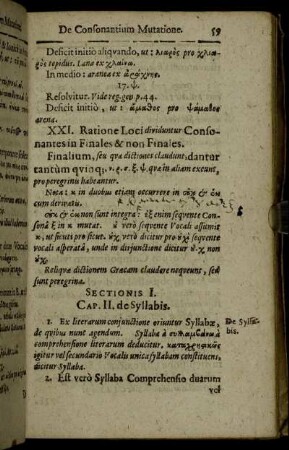 De Consonantium Mutatione. 59
Deficit initiò aliqvando, ut: λιαρὸς pro χλια-
ρὸς tepidus. Lana ex χλαῖνα.
In medio: aranea ex ἀράχνη.
17. ψ.
Resolvitur. Vide reg. gen p. 44.
Deficit initiò, ut: ἄμαθος pro ψάμαθος
arena.
XXI. Ratione Loci dividuntur Conso-
nantes in Finales & non Finales.
Finalium, seu qvæ dictiones claudunt, dantur
tantùm qvinq; ν. ρ. ς. ξ. ψ. qvæ in aliam exeunt,
pro peregrinis habeantur.
Nota: κ in duobus etiam occurrere in οὐκ & ἐκ
cum derivatis.
οὐκ & ἐκ non sunt integra: ἐξ enim seqvente Con-
sonâ ξ in κ mutat. οὐ verò seqvente Vocali assumit
κ, ut sicuti pro sicut. οὐχ verò dicitur pro οὐχὶ seqvente
vocali asperatâ, unde in disjunctione dicitur οὐ-χ. non
οὐχ.
Reliqvæ dictionem Græcam claudere neqveunt, sed
sunt peregrina.
SECTIONIS I.
CAP. II. de Syllabis.
1. Ex literarum conjunctione oriuntur Syllabæ, De Sylla-
de qvibus nunc agendum. Syllaba à συλλαμβάνω à bis.
comprehensione literarum deducitur. καταχρηστικῶς
igitur vel secundario Vocalis unica syllabam constituens,
dicitur Syllaba.
2. Est verò Syllaba Comprehensio duarum
vel